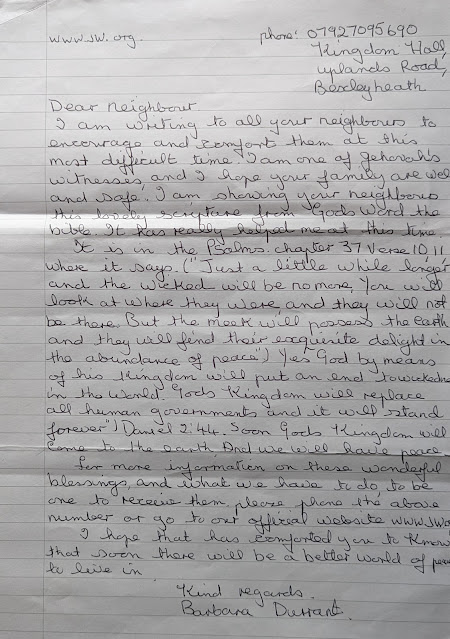 www.jw.org. phone: 07927095690
Kingdom Hall,
Uplands Road,
Bexleyheath
Dear Neighbour
I am writing to all your neighbours to
encourage and comfort them at this
most difficult time. I am one of Jehovah's
witnesses and I hope your family are well
and safe. I am showing your neighbours
this lovely scripture from Gods Word the
bible. It has really helped me at this time.
It is in the Psalms. chapter 37 Verse 10, 11
where it says. ("Just a little while longer
and the wicked will be no more, You will
look at where they were and they will not
be there. But the meek will possess the earth
and they will find their exquisite delight in
the abundance of peace") Yes God by means
of his Kingdom will put an end to wickedness
in the World. Gods Kingdom will replace
all human governments and it will stand
forever") Daniel 2:44. Soon Gods Kingdom will
come to the earth. And we will have peace
for more information on these wonderful
blessings, and what we have to do, to be
one to receive them please phone the above
number or go to our official website www.jw.o
I hope that has comforted you to know
that soon there will be a better world of peace
to live in.
Kind regards.
Barbara Durrant.